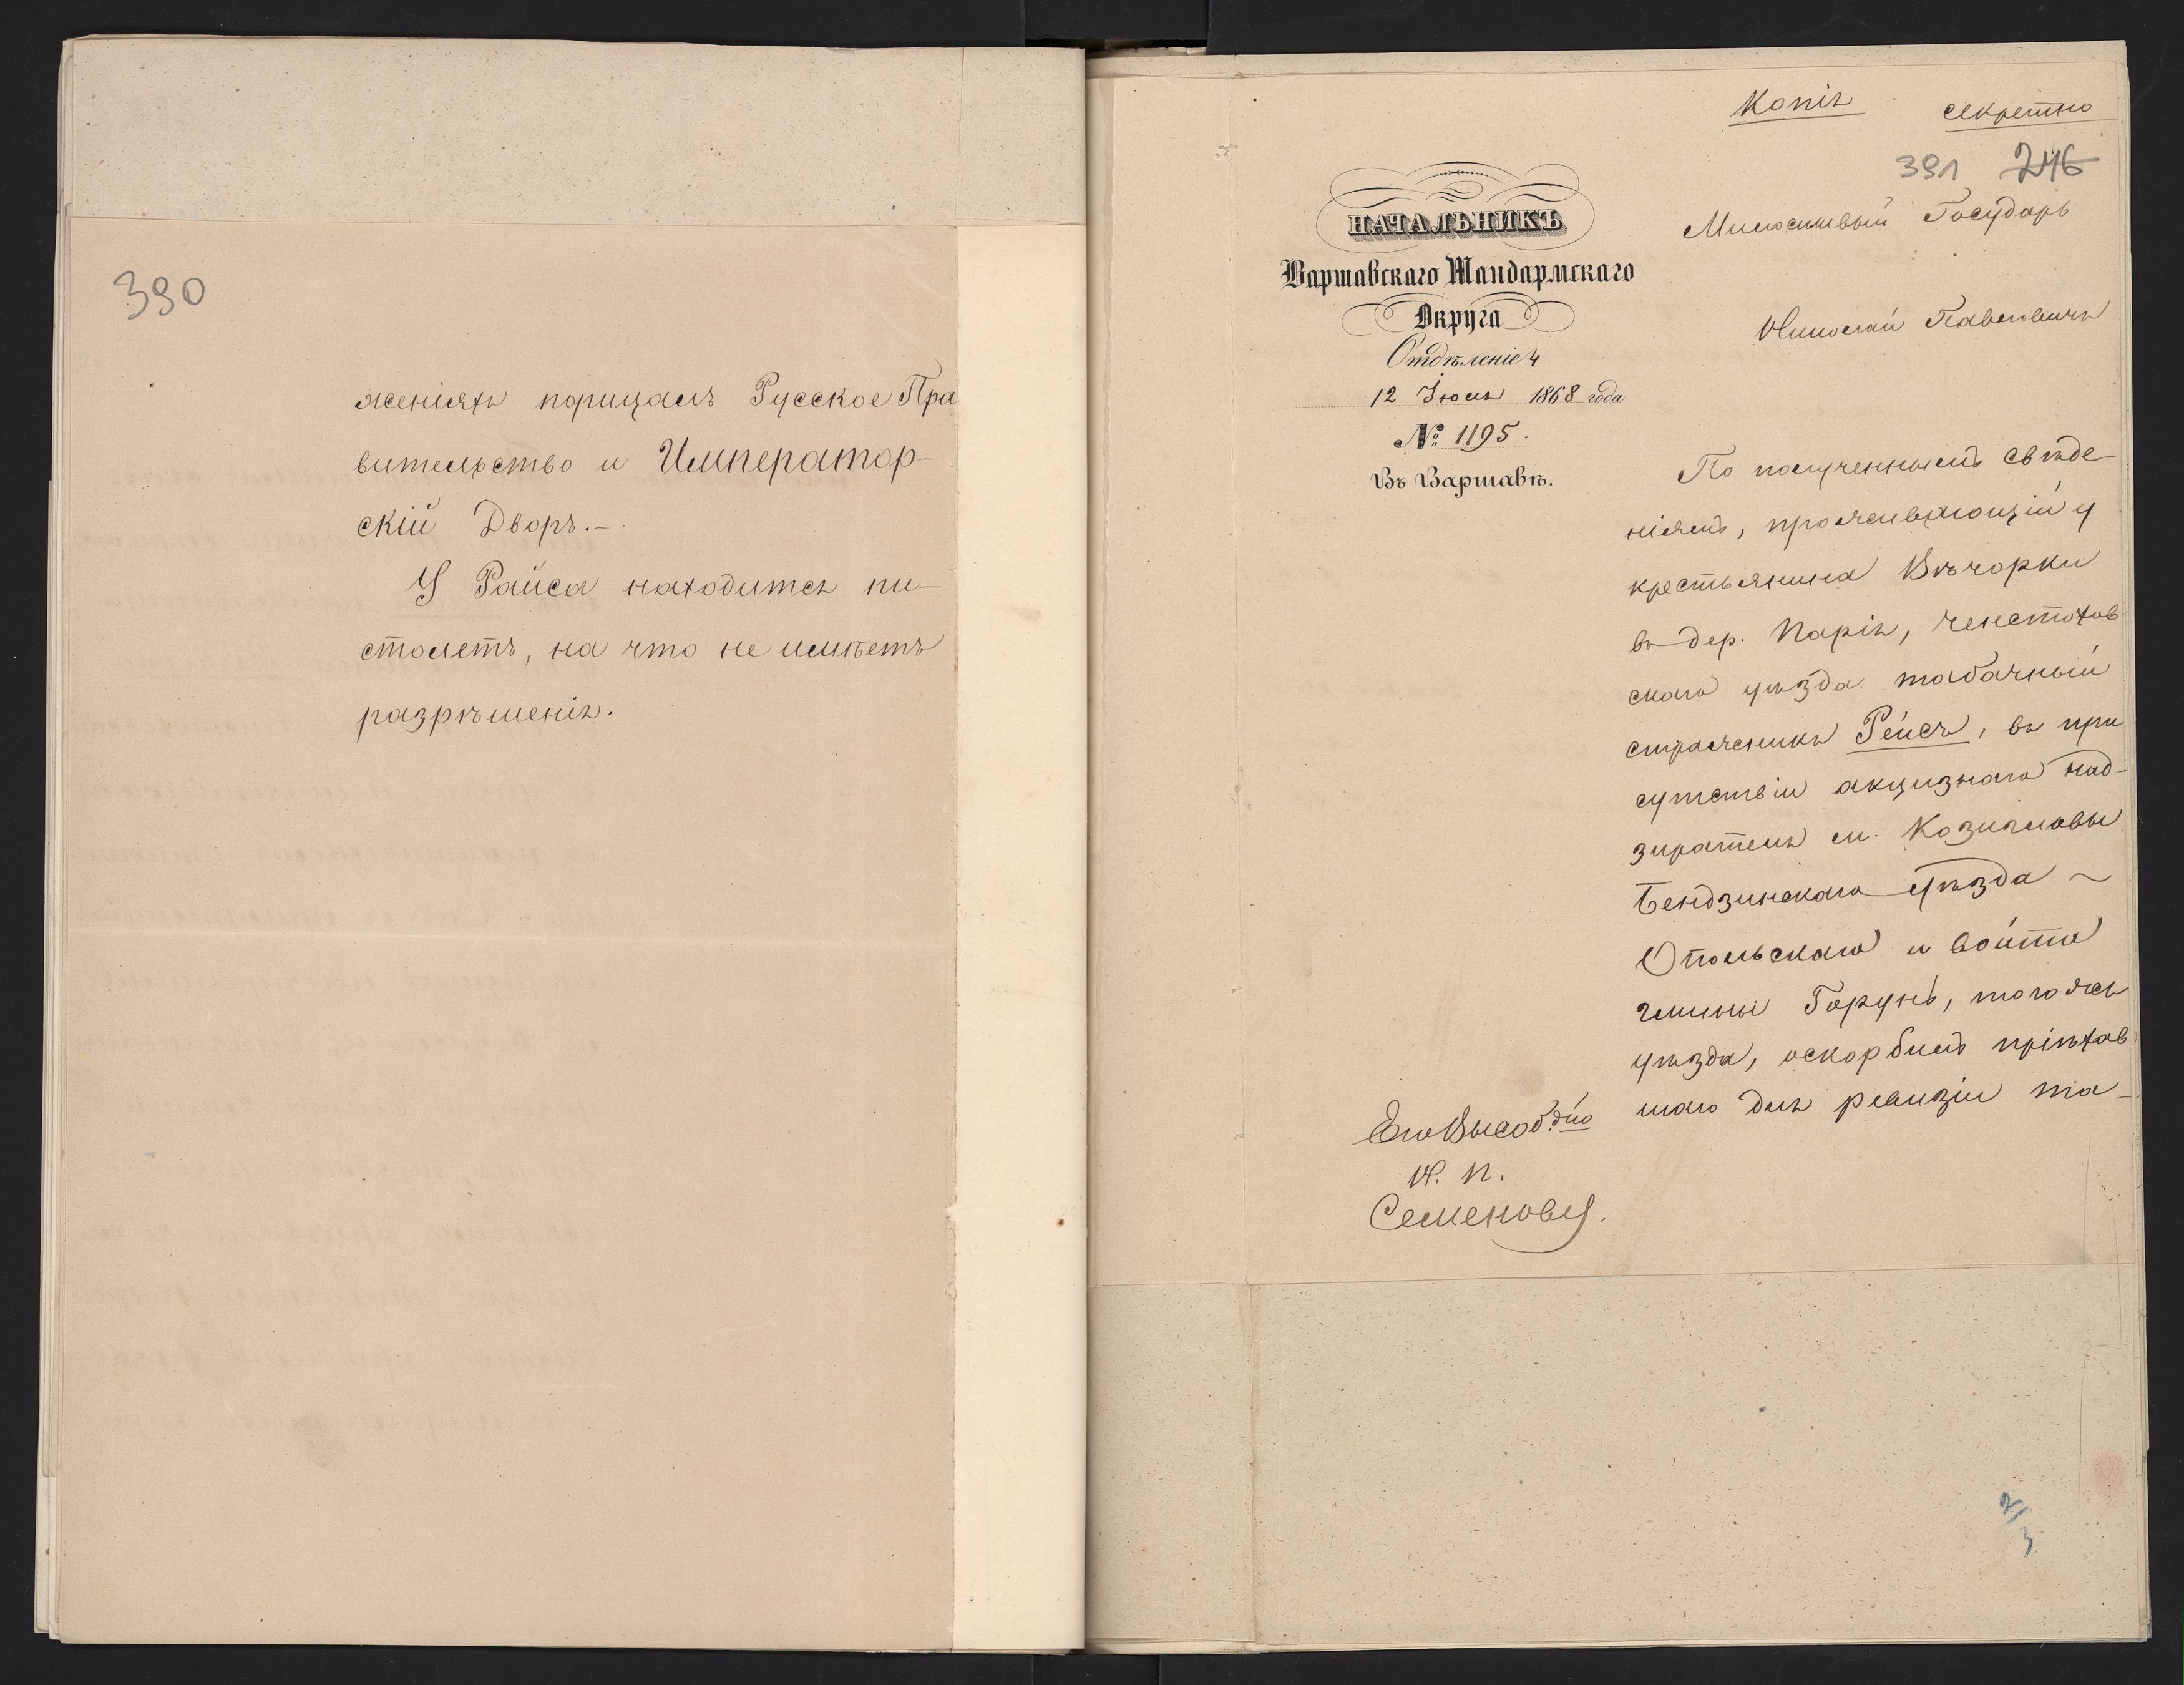 390
женіяхъ порицалъ Русское Пра
вительство и Император-
скій Дворъ.-
У Райса находится пи-
столетъ, на что не имѣетъ
разрѣшенія.
Копія
секретно
391 246
НАЧАЛЬНИКЪ
Варшавскаго Жандармскаго
Округа
Отдѣленіе 4
12 Іюля 1868 года
№ 1195.
Въ Варшавѣ.
Милостивый Государь
Николай Павловичъ
По полученнымъ свѣде-
ніямъ, проживающій у
крестьянина Вѣчорки
въ дер. Паріи, Ченстохов
скаго уѣзда табачный
стражникъ Рейсъ, въ при
сутствіи акцизнаго над-
зирателя м. Козигловы
Бендзинскаго уѣзда ~
Опольскаго и войта
гмины Горунь, того же
уѣзда, оскорбилъ пріѣхав
шаго для ревизіи та-
Его Высобдію
Н. П.
Семенову.
2/3